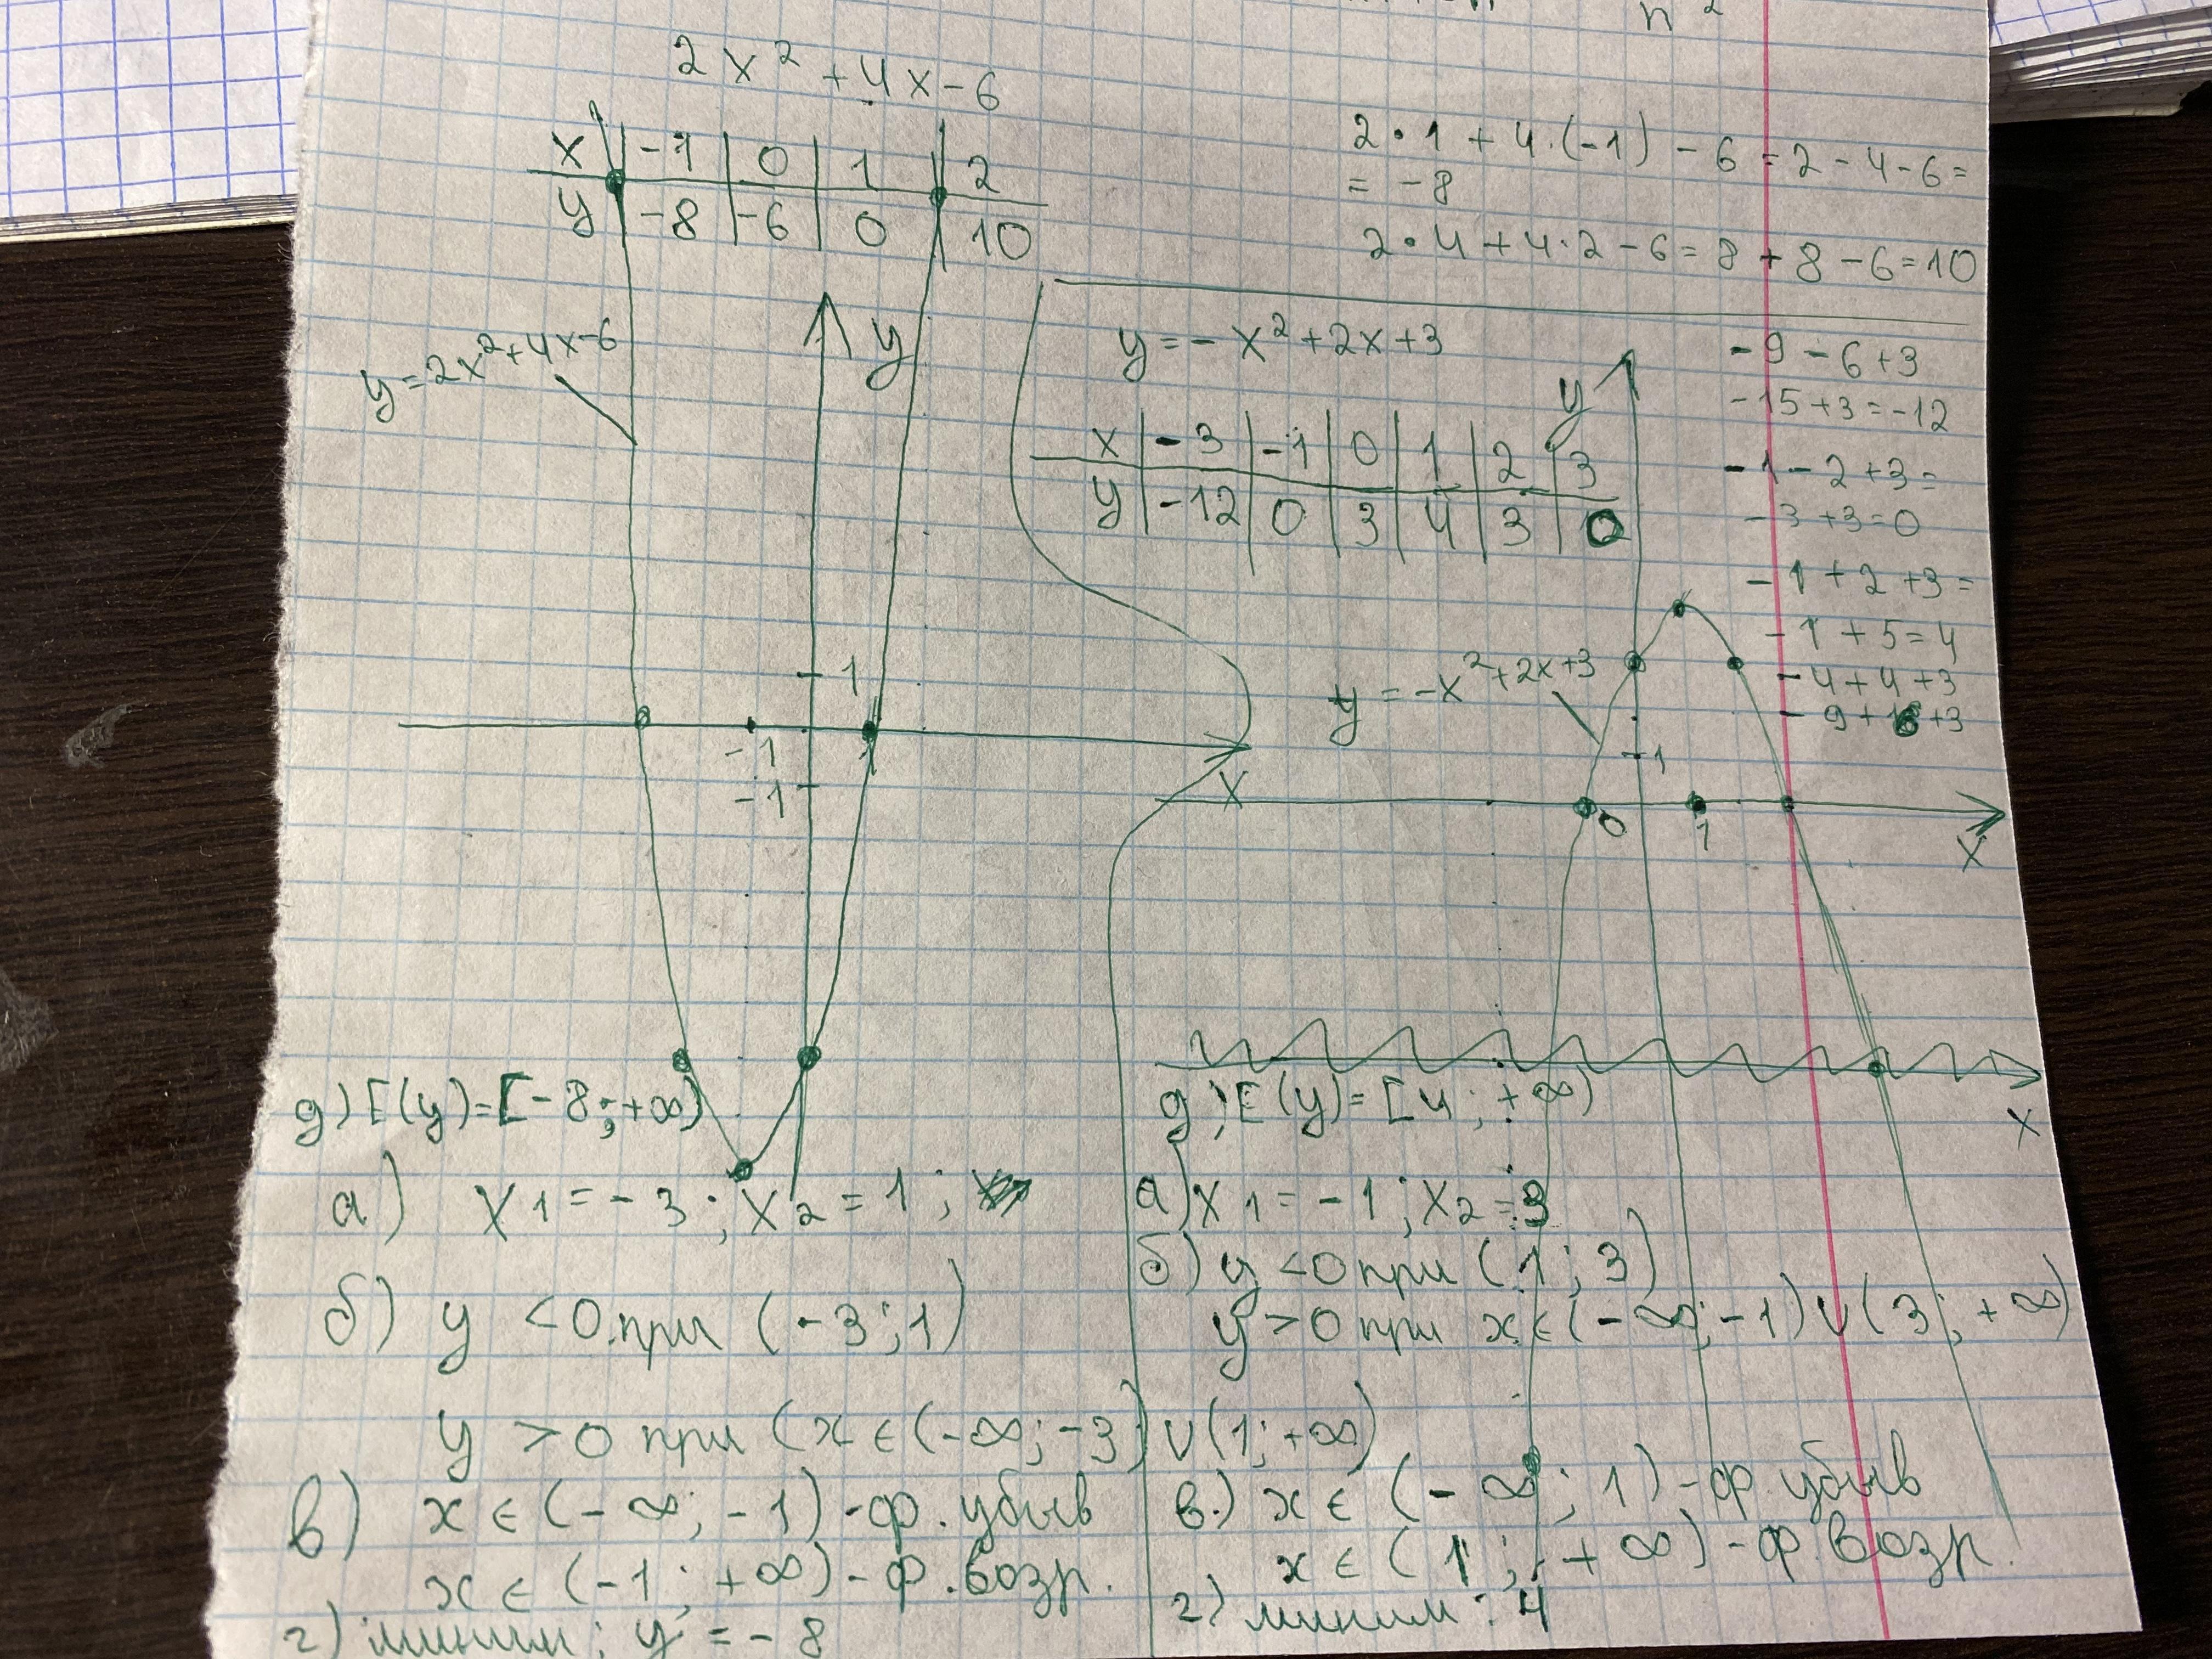 n²
2x² + 4x - 6
x | -1 | 0 | 1 | 2
y | -8 | -6 | 0 | 10
2·1 + 4·(-1) - 6 = 2 - 4 - 6 =
= -8
2·4 + 4·2 - 6 = 8 + 8 - 6 = 10
y = 2x² + 4x - 6
y
1
-1
1
-1
x
y = -x² + 2x + 3
x | -3 | -1 | 0 | 1 | 2 | 3
y | -12 | 0 | 3 | 4 | 3 | 0
-9 - 6 + 3
-15 + 3 = -12
-1 - 2 + 3 =
-3 + 3 = 0
-1 + 2 + 3 =
-1 + 5 = 4
-4 + 4 + 3
-9 + 6 + 3
y
y = -x² + 2x + 3
1
0
1
x
x
д) E(y) = [-8; +∞)
а) x1 = -3; x2 = 1;
б) y < 0 при (-3; 1)
y > 0 при (x ∈ (-∞; -3) ∪ (1; +∞)
в) x ∈ (-∞; -1) - ф. убыв
x ∈ (-1; +∞) - ф. возр.
г) миним: y = -8
д) E(y) = [4; +∞)
а) x1 = -1; x2 = 3
б) y < 0 при (1; 3)
y > 0 при x ∈ (-∞; -1) ∪ (3; +∞)
в.) x ∈ (-∞; 1) - ф. убыв
x ∈ (1; +∞) - ф. возр.
г) миним: 4